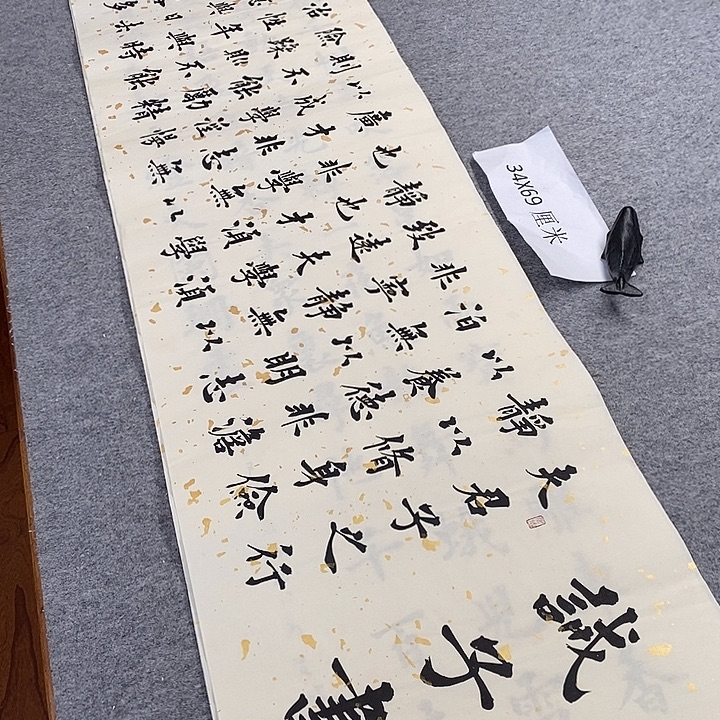 誡子書
夫君子之行
靜以脩身儉
以養德非澹
泊無以明志
非寧靜無以
致遠夫學須
靜也才須學
也非學無以
廣才非志無
以成學淫慢
則不能勵精
險躁則不能
治性年與時
與日去
多
34X69厘米